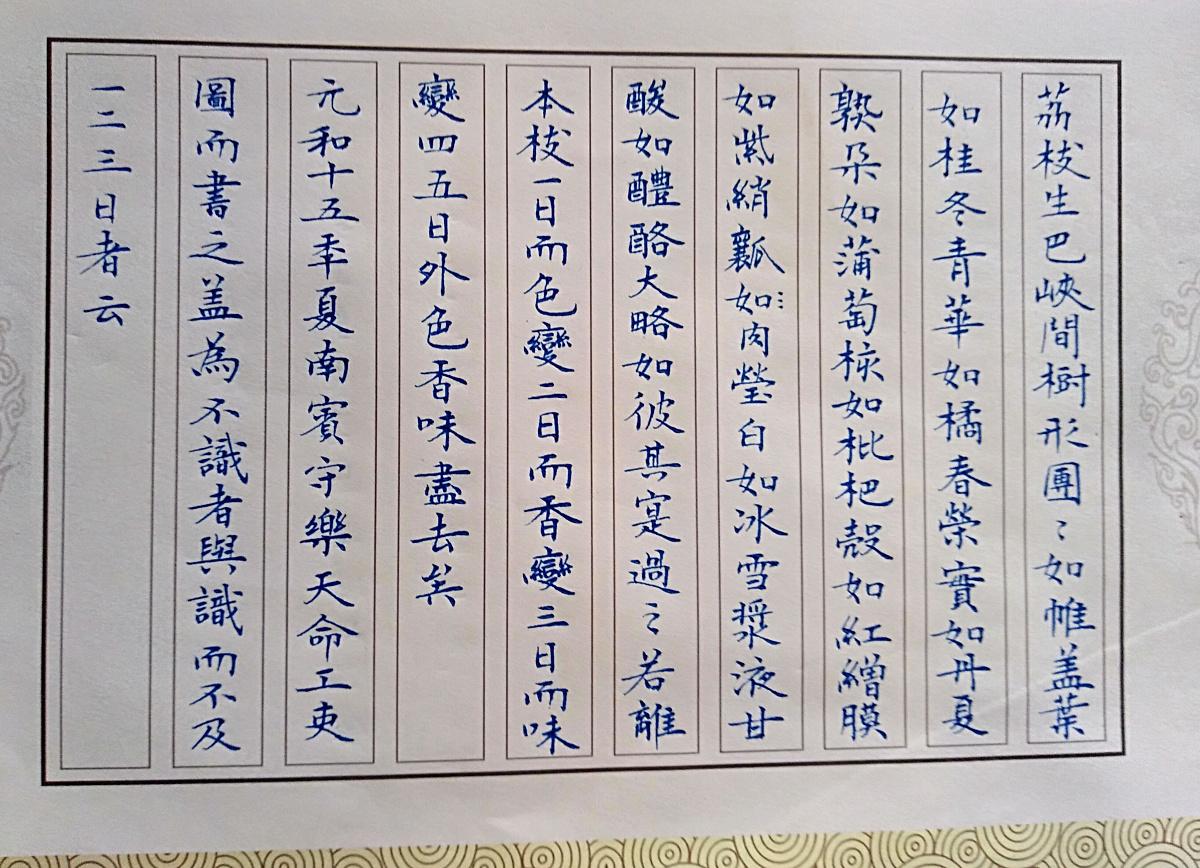 荔枝生巴峽間樹形團〻如帷盖葉
如桂冬青華如橘春榮實如丹夏
䎡朵如蒲萄核如枇杷殼如紅繒膜
如紫綃瓤如肉瑩白如冰雪漿液甘
酸如醴酪大略如彼其寔過〻若離
本枝一日而色變二日而香變三日而味
變四五日外色香味盡去矣
元和十五季夏南賓守樂天命工吏
圖而書之盖為不識者與識而不及
一二三日者云